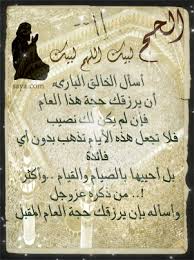 الحج
لبيك اللهم لبيك
saya.com
أسأل الخالق الباريء
أن يرزقك حجة هذا العام
فإن لم يكن لك نصيب
فلا تجعل هذه الأيام تذهب بدون أي
فائدة
بل أحييها بالصيام والقيام ..وأكثر
!.. من ذكره عزوجل
وأسأله بأن يرزقك حجة العام المقبل